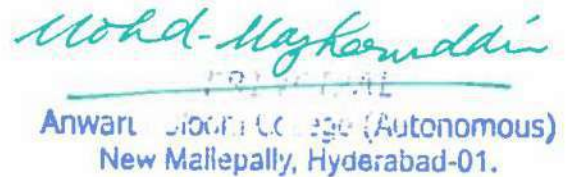 Mohd-Mazharuddin
PRINCIPAL
Anwarul (Autonomous)
New Mallepally, Hyderabad-01.